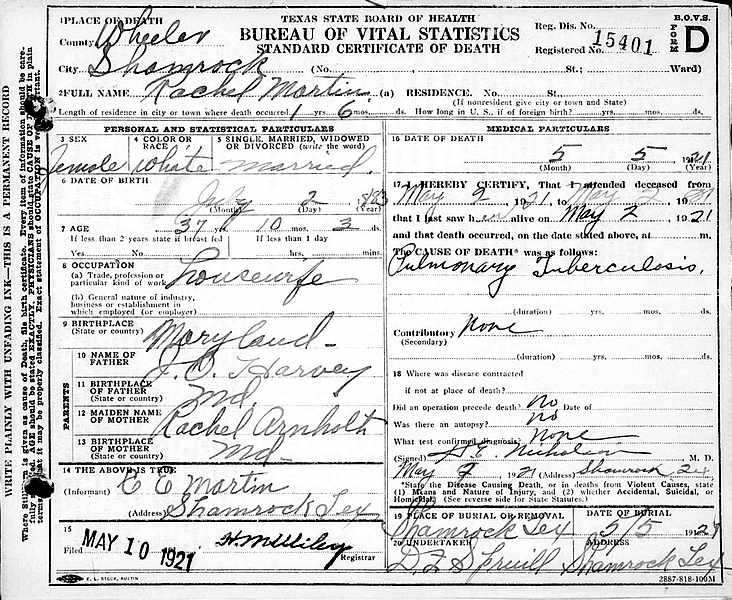 TEXAS STATE BOARD OF HEALTH
BUREAU OF VITAL STATISTICS
STANDARD CERTIFICATE OF DEATH
Reg. Dis. No.
Registered No. 15401
B.O.V.S. FORM D
1 PLACE OF DEATH
County Wheeler
City Shamrock (No. St.; Ward)
2 FULL NAME Rachel Martin (a) RESIDENCE. No. St.,
(If nonresident give city or town and State)
Length of residence in city or town where death occurred 1 yrs. 6 mos. ds. How long in U. S., if of foreign birth? yrs. mos. ds.
PERSONAL AND STATISTICAL PARTICULARS
3 SEX
Female
4 COLOR OR RACE
White
5 SINGLE, MARRIED, WIDOWED OR DIVORCED (write the word)
Married.
6 DATE OF BIRTH
July 2 1883
(Month) (Day) (Year)
7 AGE 37 yrs. 10 mos. 3 ds.
If less than 2 years state if breast fed If less than 1 day
Yes No hrs. mins.
8 OCCUPATION
(a) Trade, profession or particular kind of work Housewife
(b) General nature of industry, business or establishment in which employed (or employer)
9 BIRTHPLACE
(State or country) Maryland
PARENTS
10 NAME OF FATHER Harvey
11 BIRTHPLACE OF FATHER
(State or country) Md.
12 MAIDEN NAME OF MOTHER Rachel Arnholt
13 BIRTHPLACE OF MOTHER
(State or country) Md
14 THE ABOVE IS TRUE
(Informant) E E Martin
(Address) Shamrock Tex
15
Filed MAY 10 1921 Registrar
MEDICAL PARTICULARS
16 DATE OF DEATH
5 5 1921
(Month) (Day) (Year)
17 I HEREBY CERTIFY, That I attended deceased from
May 2, 1921, to May 2, 1921
that I last saw her alive on May 2, 1921
and that death occurred, on the date stated above, at m.
The CAUSE OF DEATH* was as follows:
Pulmonary Tuberculosis.
(duration) yrs. mos. ds.
Contributory None
(Secondary)
(duration) yrs. mos. ds.
18 Where was disease contracted
if not at place of death?
Did an operation precede death? No Date of
Was there an autopsy? No
What test confirmed diagnosis? None
(Signed) Nicholson M. D.
May 1921 (Address) Shamrock
*State the Disease Causing Death, or in deaths from Violent Causes, state (1) Means and Nature of Injury, and (2) whether Accidental, Suicidal, or Homicidal. (See reverse side for State Statutes.)
19 PLACE OF BURIAL OR REMOVAL
Shamrock Tex
DATE OF BURIAL
5/5 192
20 UNDERTAKER
Spruill
ADDRESS
Shamrock Tex
E. L. STECK, AUSTIN
2887-818-100M
WRITE PLAINLY WITH UNFADING INK—THIS IS A PERMANENT RECORD